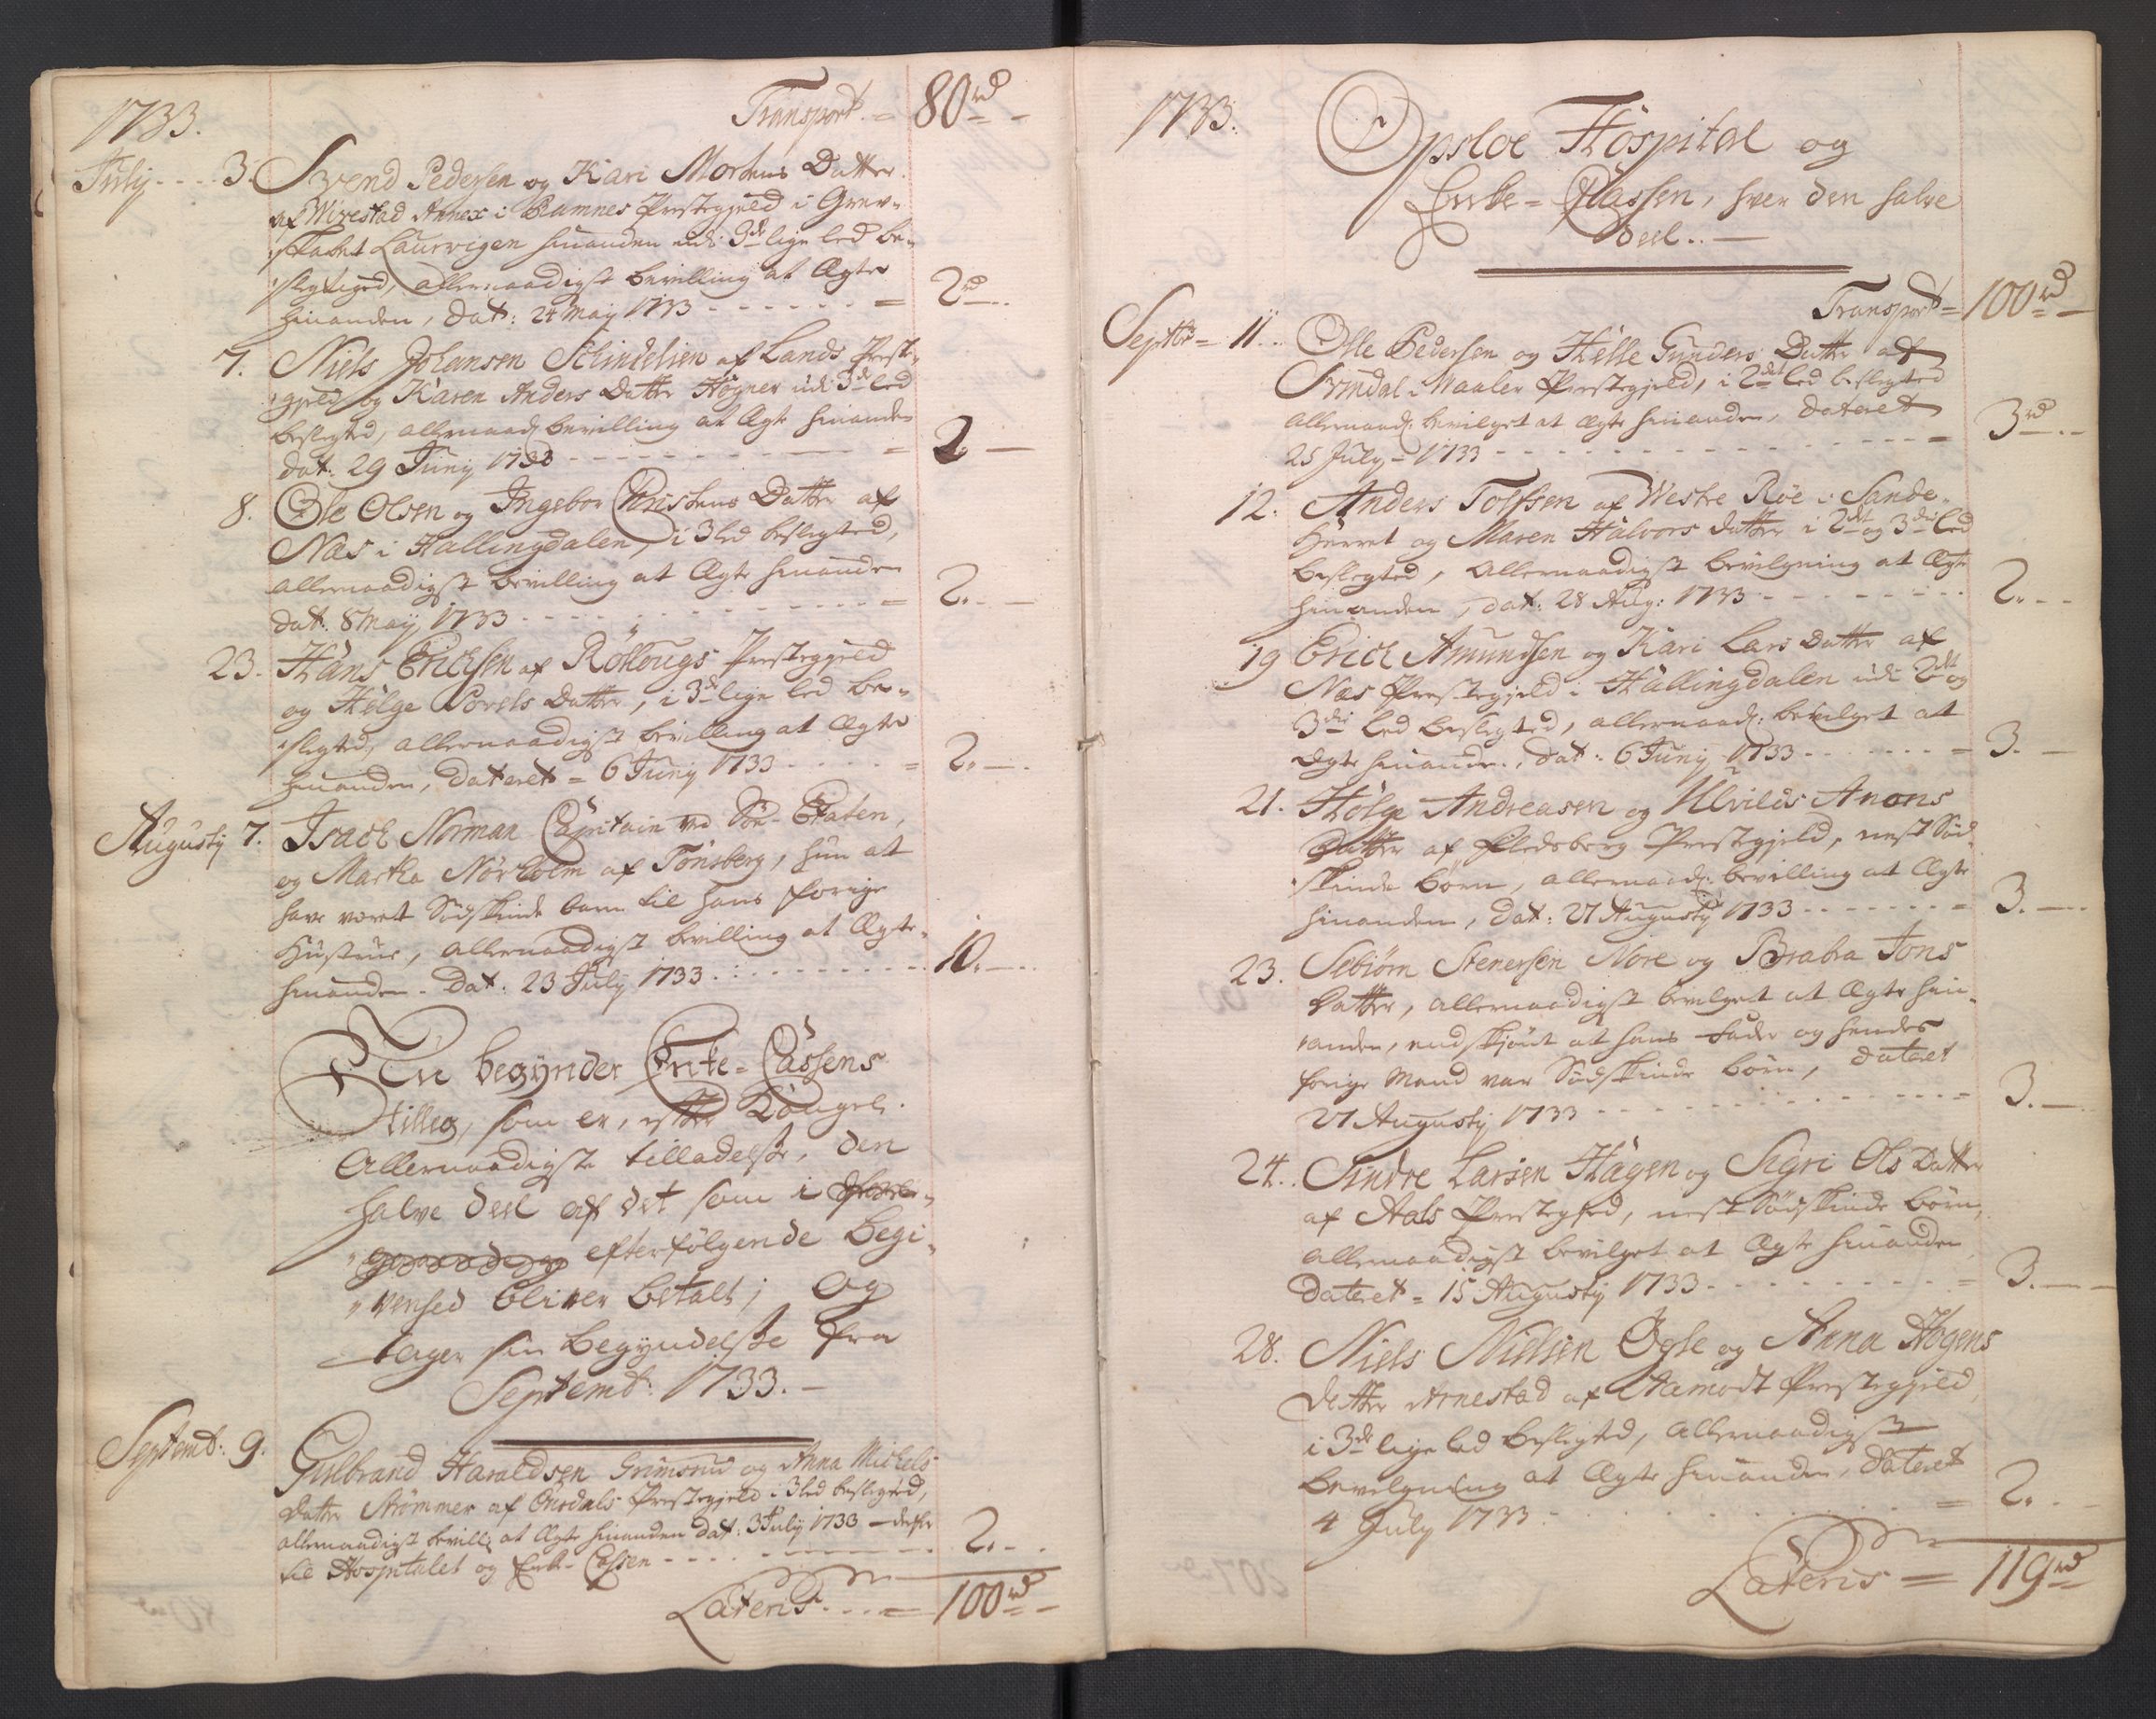 1733.
Transport. = 80 rd -
July - - - 3. Svend Pedersen og Kari Mortens Datter
af Wivestad Annex i Ramnes Præstegield i Grev-
skabet Laurvigen hinanden udi 3de lige led be-
slegtiged, allernaadigst bevilling at Ægte
hinanden, Dat: 24 May 1733 - - - - - = 2 rd - -
7. Niels Johansen Schindelien af Lands Præste-
gield og Karen Anders Datter Høgner udi 3de led
beslegted, allernaad: bevilling at Ægte hinanden
dat: 29 Juny 1733 - - - - - = 2 -
8. Ole Olsen og Ingebor Christens Datter af
Næs i Hallingdalen, i 3 led beslegted,
allernaadigst bevilling at Ægte hinanden
dat: 8 May 1733 - - - - - = 2. - -
23. Hans Erichsen af Rollougs Præstegield
og Helge Povels Datter, i 3de lige led be-
slegted, allernaadigst bevilling at Ægte
hinanden, Dateret = 6 Juny 1733 - - - = 2. - -
Augusty 7. Isach Norman Capitain ved Söe-Etaten,
og Martha Nørholm af Tönsberg, hun at
have været Södskinde barn til hans forige
Hustrue, allernaadigst bevilling at Ægte
hinanden. Dat: 23 July 1733. - - - - 10. - -
Nu begynder Enke-Cassens
tilleg, som er, efter Kongel.
Allernaadigste tilladelsse, den
halve deel af det som i
efterfølgende Begi-
venhed bliver betalt; og
tager sin Begyndelsse fra
Septemb: 1733. -
Septemb: 9. Gulbrand Haraldsen Grimsrud og Anna Michels
Datter Strömmer af Præstegield i 3 led beslegted,
allernaadigst bevill: at Ægte hinanden dat: 3 July 1733 -
til Hospitalet og Enke-Cassen - - - - - 2. - -
Lateris - - - = 100 rd -
1733.
Opsloe Hospital og
Enke-Cassen, hver den halve
deel. -
Transport = 100 rd -
Septbr = 11. Olle Pedersen og Helle Gunders Datter af
Svindal i Waaler Præstegield, i 2det led beslegted
allernaad: bevilget at ægte hinanden, Dateret
25 July - 1733 - - - - - = 3 rd - -
12. Anders Tolfsen af Westre Röe i Sande-
Herret og Maren Halvors datter i 2det og 3die led
beslegted, Allernaadigst bevilgning at Ægte
hinanden, dat: 28 Aug: 1733 - - - - - 2. - -
19 Erich Amundsen og Kari Lars Datter af
Næs Præstegield i Hallingdalen udi 2det og
3die led beslegted, allernaad: bevilget at
Ægte hinanden, dat: 6 Juny 1733 - - - - = 3. -
21. Holge Andreasen og Ulvilds Anons
Datter af Flesberg Præstegield, nest Söd-
skinde börn, allernaad: bevilling at Ægte
hinanden, Dat: 27 Augusty 1733 - - - - = 3. - -
23. Sebiörn Stenersen Nore og Brabra Jons
Datter, allernaadigst bevilget at Ægte hin-
anden, endskjönt at hans Fader og hendes
forige Mand var Södskinde börn, dateret
27 Augusty 1733 - - - - - = 3. - -
24. Sindre Larsen Hagen og Sigri Ols Datter
af Aals Præstegield, nest Södskinde börn,
allernaadigst bevilget at Ægte hinanden
Dateret = 15 Augusty 1733. - - - - = 3. - -
28. Niels Nielsen Ögle og Anna Hogens
datter Arnestad af Aamodt Præstegield,
i 3de lige led beslegted, allernaadigst
bevilgning at Ægte hinanden, Dateret
4 July 1733. - - - - = 2. - -
Lateris = 119 rd